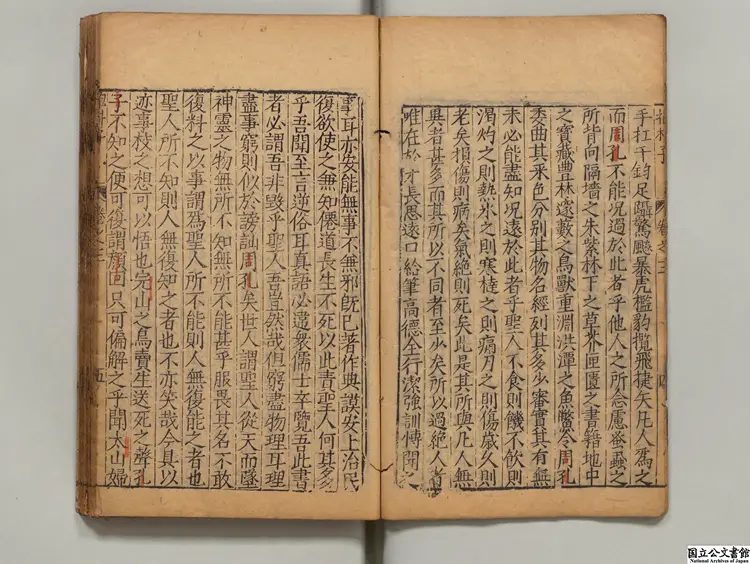 抱朴子 卷之三 四
手扛千鈞足躡驚飈暴虎檻豹攬飛捷矢凡人爲之
而周孔不能況過於此者乎他人之所念慮蚤蝨之
所背向隔墻之朱紫林下之草芥匣匱之書籍地中
之寶藏豊林邃藪之鳥獸重淵洪潭之魚鱉令周孔
委曲其采色分別其物名經列其多少審實其有無
未必能盡知況遠於此者乎聖人不食則饑不飲則
渴灼之則熱氷之則寒撻之則痛刃之則傷歲久則
老矣損傷則病矣氣絕則死矣此是其所與凡人無
異者甚多而其所以不同者至少矣所以過絕人者
唯在於才長思遠口給筆高德全行潔強訓博聞之
事耳亦安能無事不無邪旣已著作典謨安上治民
復欲使之無知僊道長生不死以此責聖人何其多
乎吾聞至言逆俗耳真語必違衆儒士卒覽吾此書
者必謂吾非毀乎聖人吾豈然哉但窮盡物理耳理
盡事窮則似於謗訕周孔矣世人謂聖人從天而墜
神靈之物無所不知無所不能甚乎服畏其名不敢
復料之以事謂爲聖人所不能則人無復能之者也
聖人所不知則人無復知之者也不亦笑哉今具以
迹事校之想可以悟也完山之鳥賣生送死之聲孔
子不知之便可復謂顏回只可偏解之乎聞太山婦
五
国立公文書館
National Archives of Japan